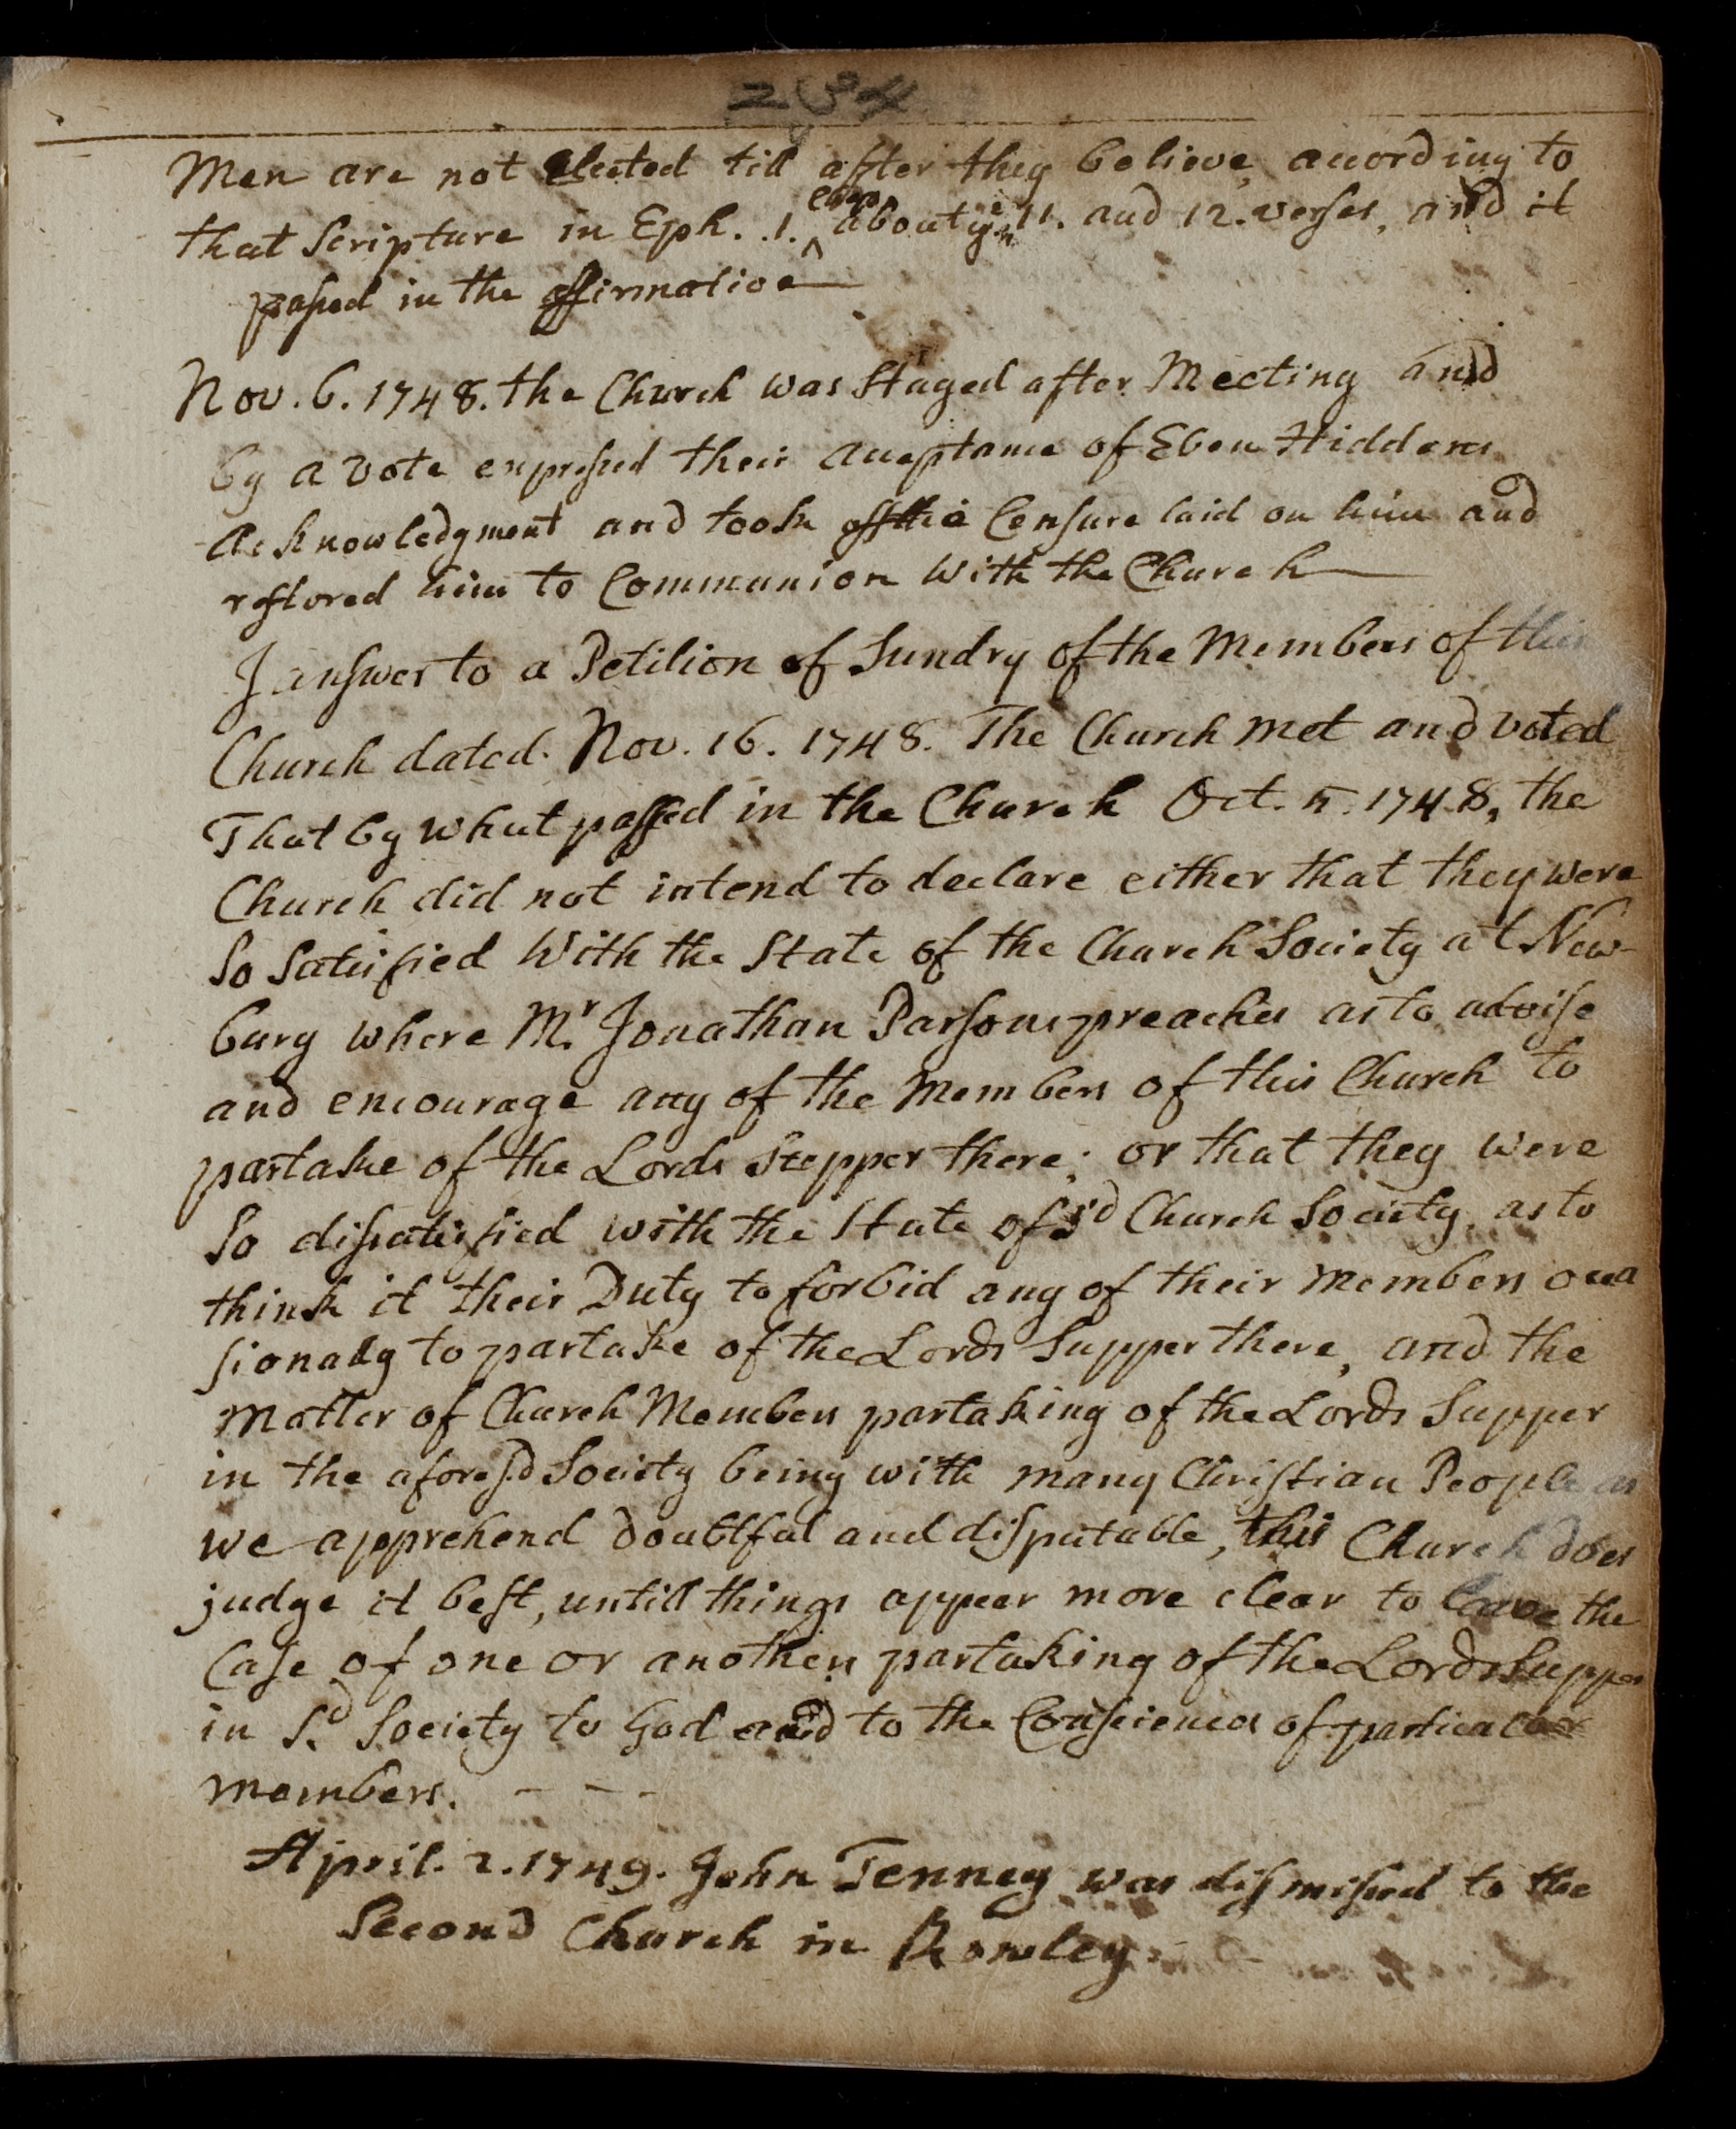 234
Men are not Elected till after they believe, according to
that Scripture in Eph. .1. chap about ye 11. and 12. verses, and it
passed in the affirmative
Nov. 6. 1748. the Church was Stayed after Meeting and
by a vote expressed their acceptance of Eben Hiddens
Acknowledgment and took off the Censure laid on him and
restored him to Communion With the Church
I answer to a Petition of Sundry of the Members of this
Church dated. Nov. 16. 1748. The Church met and voted
That by what passed in the Church Oct. 5. 1748, the
Church did not intend to declare either that they were
So Satisfied With the State of the Church Society at New-
bury where Mr. Jonathan Parsons preaches as to advise
and encourage any of the Members of this Church to
partake of the Lords Supper there; or that they were
So dissatisfied with the State of sd Church Society, as to
think it their Duty to forbid any of their members occa
sionally to partake of the Lords Supper there, and the
Matter of Church Members partaking of the Lords Supper
in the aforesd Society being with many Christian People as
we apprehend doubtful and disputable, this Church does
judge it best, untill things appear more clear to leave the
Case of one or anothers partaking of the Lords Supper
in Sd. Society to God and to the Consciences of particular
members. - - -
April. 2. 1749. John Tenney was dismissed to the
Second Church in Rowley.